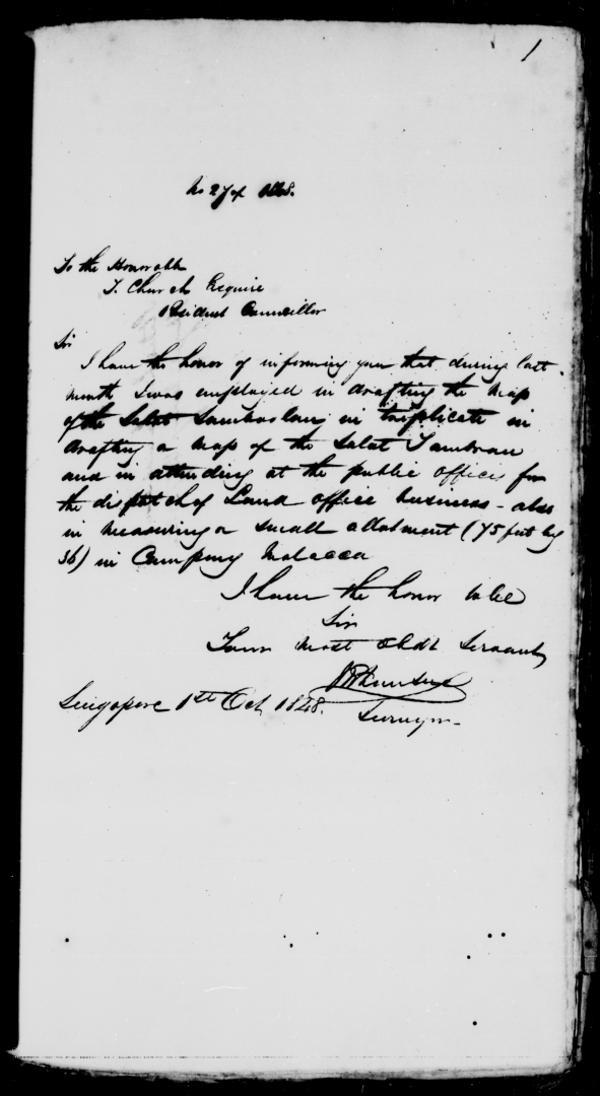 1
No 27 of 1848.
To the Honorable
T. Church Esquire
Resident Councillor
Sir
I have the honor of informing you that during last
month I was employed in drafting the map
of the Salat Sambaolang in triplicate in
drafting a map of the Salat Tambrau
and in attending at the public offices for
the dispatch of Land office business - also
in measuring a small allotment (75 feet by
36) in Campong Malacca
I have the honor to be
Sir
Your most Obdt Servant
Surveyor
Singapore 1st Oct. 1848.